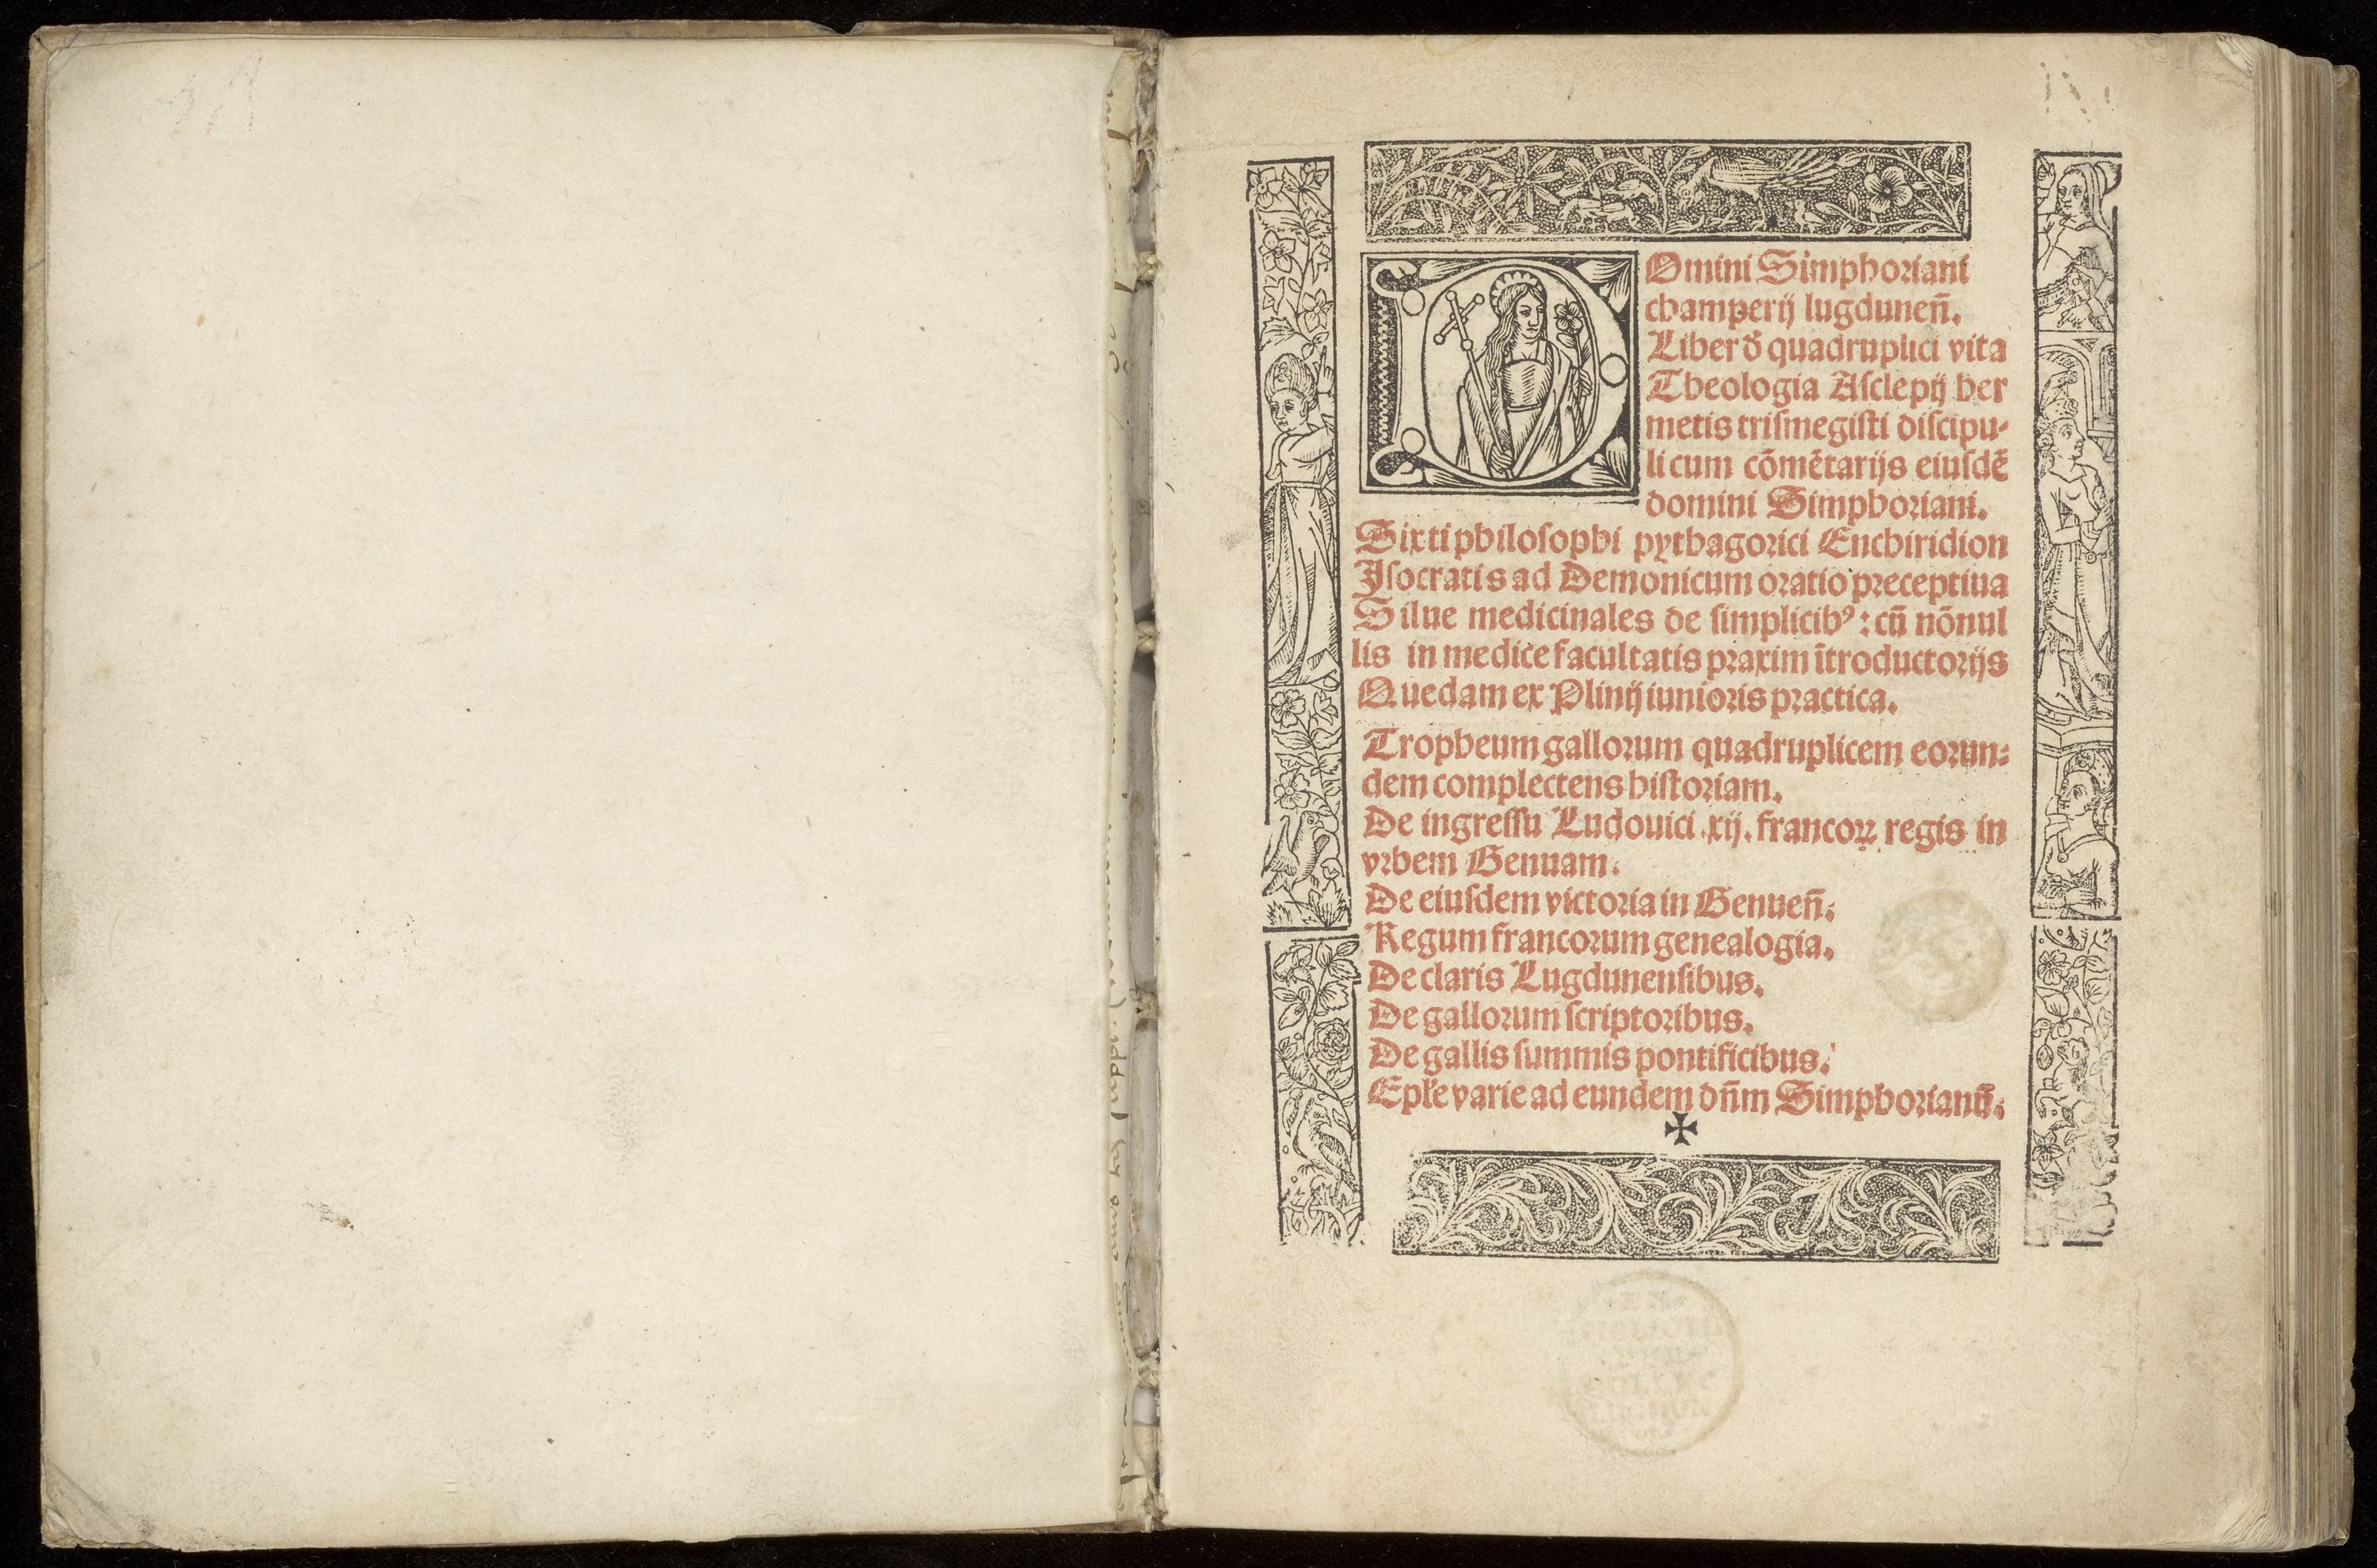 DOmini Simphoriani
champerij lugduneñ.
Liber ď quadruplici vita
Theologia Asclepij her
metis trismegisti discipu-
li cum cõmẽtarijs eiusdẽ
domini Simphoriani.
Sixti philosophi pythagorici Enchiridion
Isocratis ad Demonicum oratio preceptiua
Silue medicinales de simplicibꝰ: cũ nõnul
lis in medice facultatis praxim ĩtroductorijs
Quedam ex Plinij iunioris practica.
Tropheum gallorum quadruplicem eorun-
dem complectens historiam.
De ingressu Ludouici .xij. francoꝝ regis in
vrbem Genuam.
De eiusdem victoria in Genueñ.
Regum francorum genealogia.
De claris Lugdunensibus.
De gallorum scriptoribus.
De gallis summis pontificibus.
Epłe varie ad eundem dñm Simphorianũ.